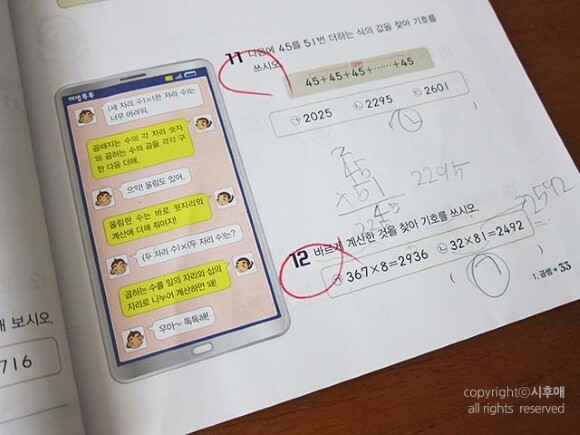 계산톡톡
(세 자리 수)×(한 자리 수)는
너무 어려워.
곱해지는 수의 각 자리 숫자
와 곱하는 수의 곱을 각각 구
한 다음 더해.
으악! 올림도 있어.
올림한 수는 바로 윗자리의
계산에 더해 줘야지!
(두 자리 수)×(두 자리 수)는?
곱하는 수를 일의 자리와 십의
자리로 나누어 계산하면 돼!
우아~ 똑똑해!
보시오.
716
11 다음에 45를 51번 더하는 식의 값을 찾아 기호를
쓰시오.
45+45+45+……+45
㉠ 2025 ㉡ 2295 ㉢ 2601
( ㉡ )
2
45
×51
45
225
2295
12 바르게 계산한 것을 찾아 기호를 쓰시오.
㉠ 367×8=2936 ㉡ 32×81=2492
2592
( ㉠ )
1. 곱셈 • 33
copyrightⓒ시후애
all rights reserved